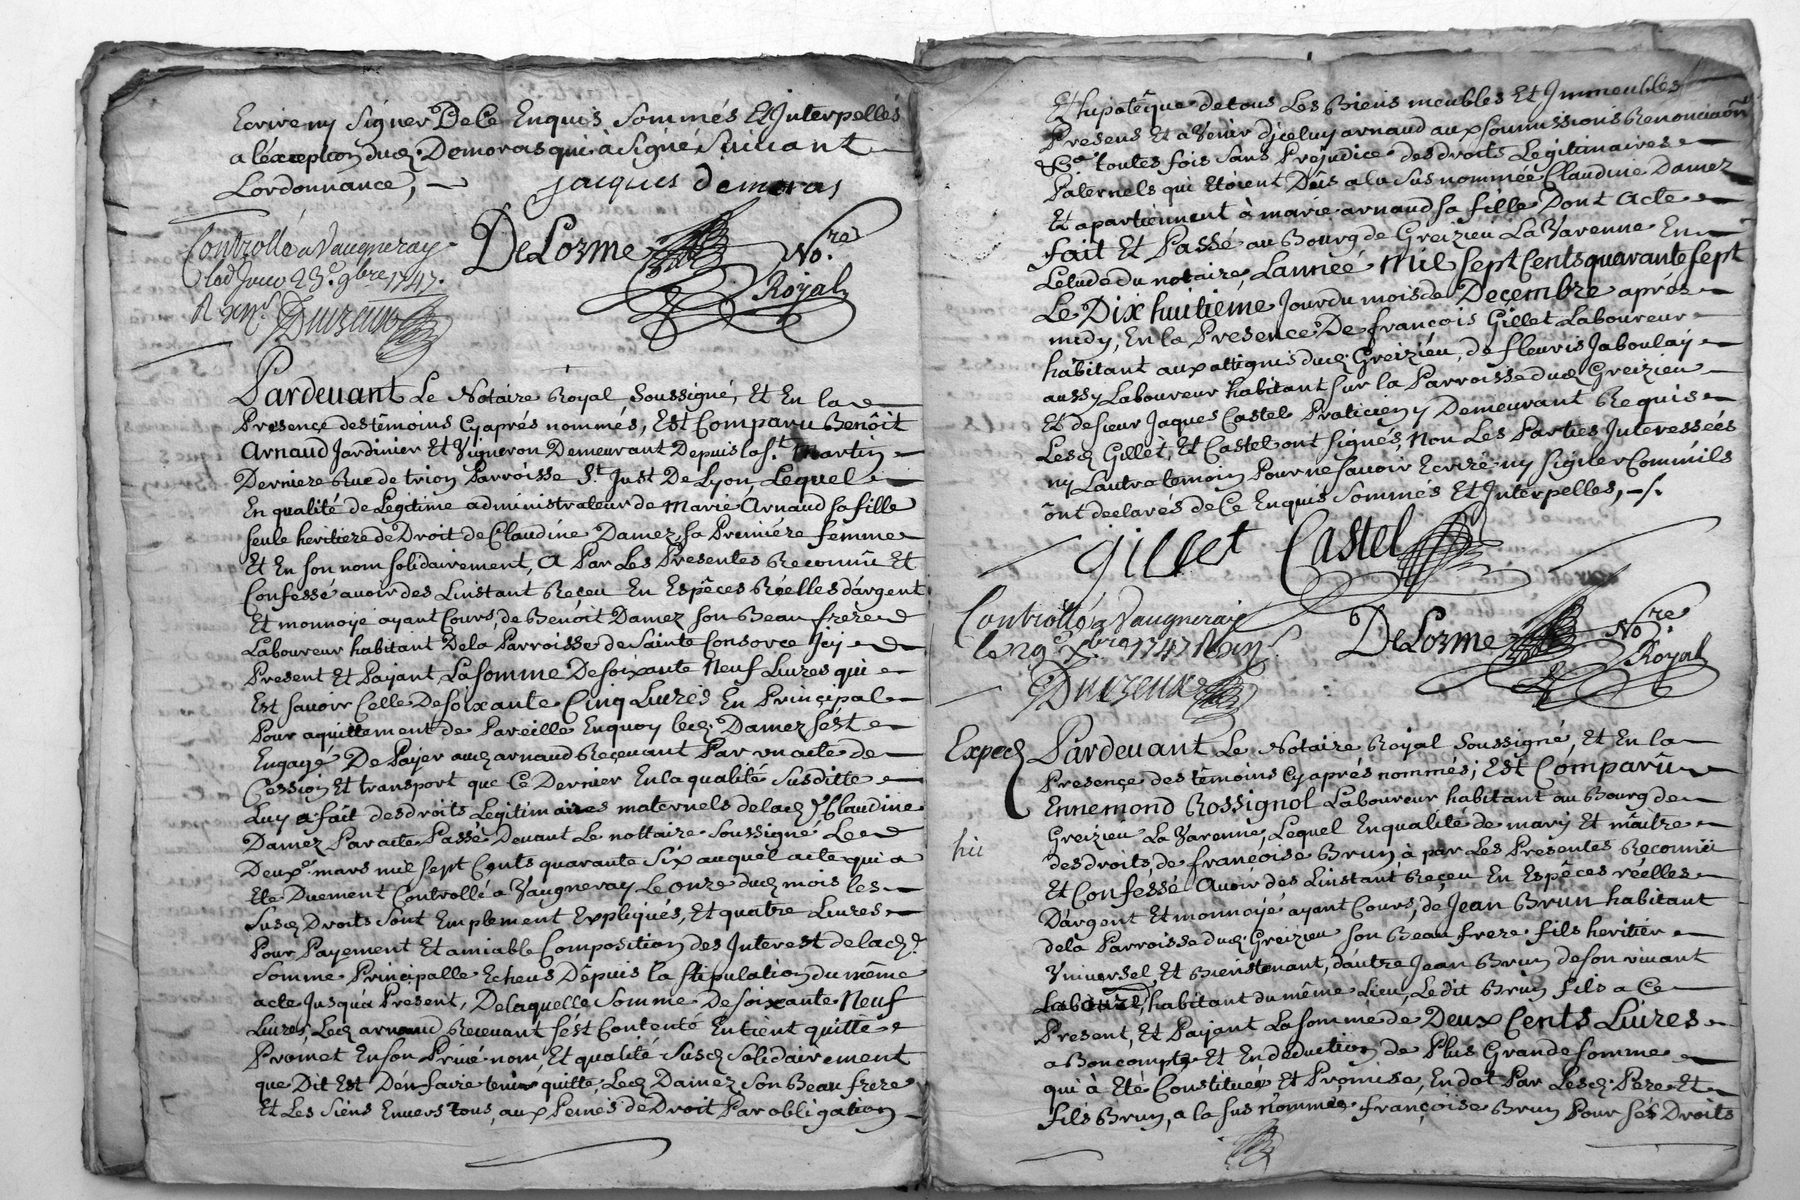 Ecrire ny Signer De Ce Enquis Sommés Et Interpellés
a l'éxception dud. Demoras qui à Signé Suivant
Lordonnance,
jacques demoras
Controllé a Vaugneray
23e. 9bre 1747.
DeLorme No.re
Royal
Pardevant Le Notaire Royal Soussigné, Et En la
Presençe des témoins Cyaprés nommés, Est Comparu Benôit
Arnaud Jardinier Et Vigneron Demeurant Depuis la St. Martin
Derniere Rue de trion Parroisse St. Just De Lyon, Lequel
En qualité de Legitime administrateur de Marie Arnaud sa fille
seule heritiere de Droit de Claudine Damez, sa Premiére femme
Et En son nom solidairement, A Par Les Presentes Reconnû Et
Confessé avoir des Linstant Reçeu En Espêces Réelles d'argent
Et monnoye ayant Cours, de Benoit Damez son Beaufrere
Laboureur habitant Dela Parroisse de Sainte Consorce Icy
Present Et Payant, La somme De soixante Neuf Livres qui
Est savoir Celle De soixante Cinq Livres En Principal
Pour aquittement de Pareille Enquoy led. Damez s'ést
Engagé De Payer aud. arnaud Reçevant Par un acte de
Cession Et transport que Ce Dernier En la qualité susditte
Luy a fait des droits Legitimaires maternels de lad. Claudine
Damez Par acte Passé Devant Le nottaire Soussigné Le
Deux mars mil sept Cents quarante six auquel acte qui a
Ete Duement Controllé a Vaugneray Le onze dud. mois les
Susd. Droits sont Emplement Expliqués, Et quatre Livres
Pour Payement Et amiable Composition des Interest de lad.
Somme Principalle Echeus Dêpuis la stipulation du même
acte Jusqu'a Present, De laquelle Somme De soixante Neuf
Livres, Led. arnaud Recevant s'ést Contenté En tient quitte
Promet En son Privé nom, Et qualité Susd. Solidairement
que Dit Est D'én faire tenir quitte, Led. Damez son Beaufrere
Et Les Siens Envers tous, aux Peines de Droit Par obligation
Et hipotêque de tous Les Biens meubles Et Immeubles
Presens Et a Venir d'jceluy arnaud aux soumissions Renonciaôn
&a. toutes fois sans Prejudice des droits Legitimaires
Paternels qui Etoient Dûs a la Sus nommée Claudine Damez
Et apartiennent à marie arnaud sa fille Dont Acte
fait Et Passé au Bourg de Greizieu La Varenne En
Letude du notaire, Lanneé Mil Sept Cents quarante sept
Le Dix huitieme Jour du mois de Deçembre aprés
midy, En la Presence De françois Gillet Laboureur
habitant aux attignis dud. Greizieu, de fleuris Jaboulay
aussy Laboureur habitant sur la Parroisse dud. Greizieu
Et de sieur Jaques Castel Praticien y Demeurant Requis
Lesd. Gillet, Et Castel ont signés, Non Les Parties Interesseés
ny Lautre temoin Pour ne savoir Ecrire ny signer Comm'ils
ônt declarés de Ce Enquis Sommés Et Interpellés,
gillet Castel
Controllé a Vaugneray
le 29e. Xbre 1747
DeLorme No.re
Royal
Exped. Pardevant Le Notaire Royal Soussigné, Et En la
Presençe des témoins Cyaprés nommés; Est Comparû
Ennemond Rossignol Laboureur habitant au Bourg de
Greizieu La Varenne, Lequel En qualité de mary Et mâitre
des droits, de françoise Brun à par Les Presentes Reconnû
Et Confessé Avoir des Linstant Reçeu En Espêces réelles
D'argent Et monnoye ayant Cours, de Jean Brun habitant
dela Parroisse dud. Greizieu son Beaufrere fils heritiér
Vniversel, Et Bienstenant, d'autre Jean Brun de son vivant
Laboure, habitant du même Lieu, Ledit Brun fils a Ce
Present, Et Payant La somme de Deux Cents Livres
a Boncompte Et En déduction de Plus Grande somme
qui à Eté Constitueé Et Promise, En dot Par Lesd. Pere Et
fils Brun, a la sus nommeé françoise Brun Pour sés Droits